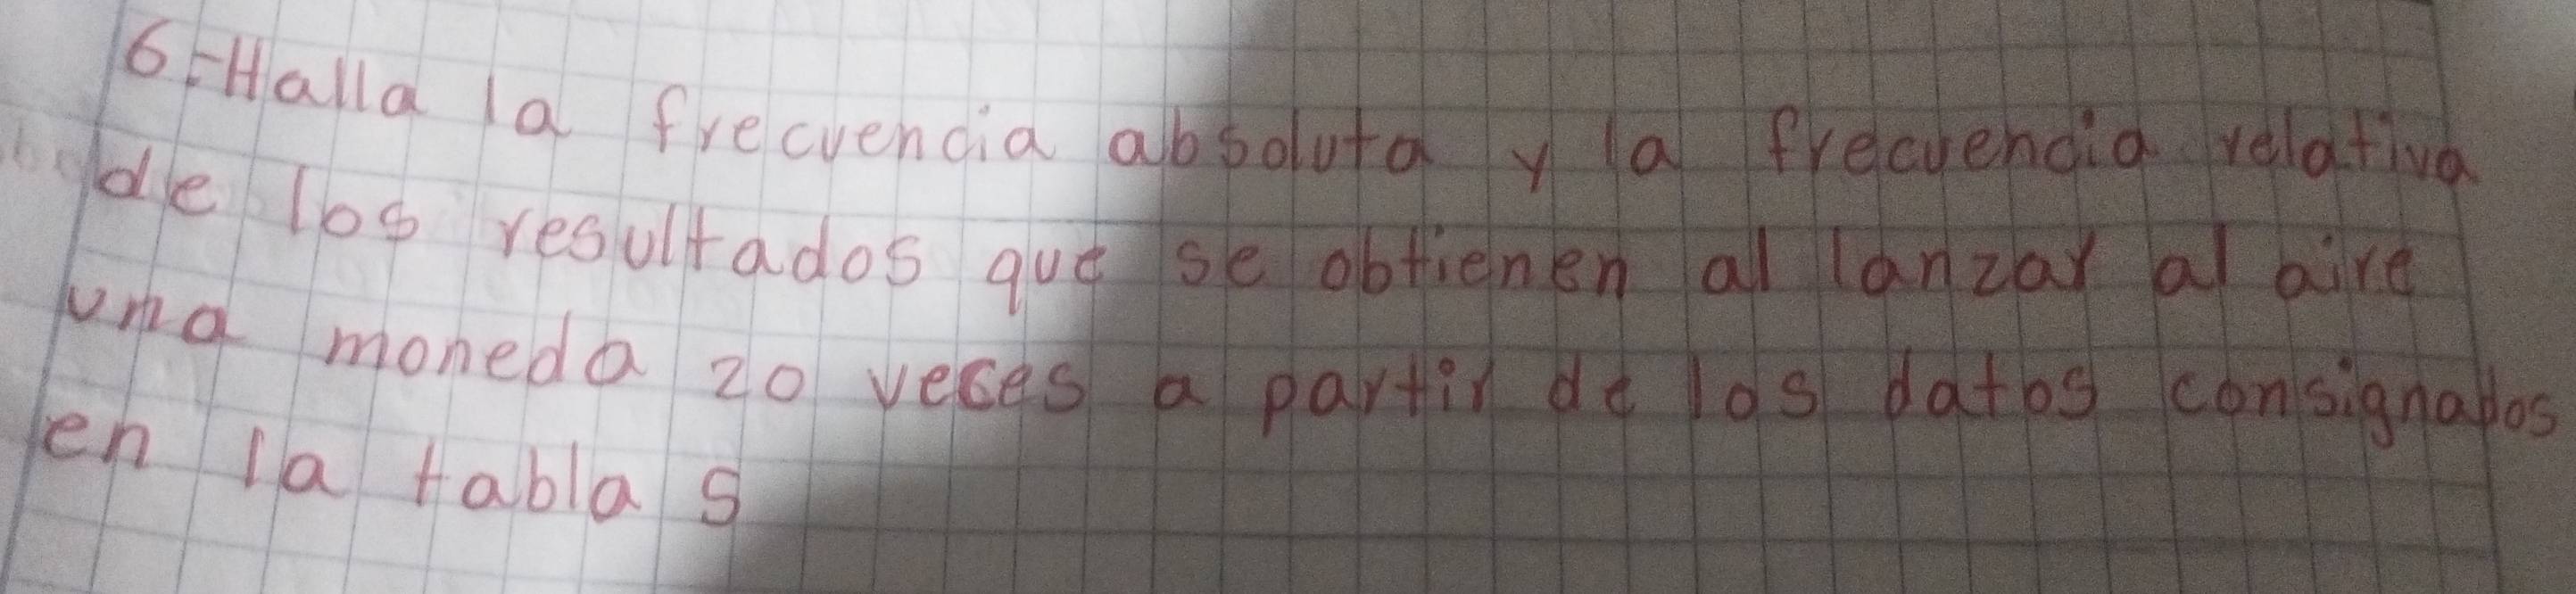 6-Halla la frecuencia absoluta y la frecuencia relativa
de los resultados que se obtienen al lanzar al aire
una moneda 20 veces a partir de los datos consignados
en la tabla 5